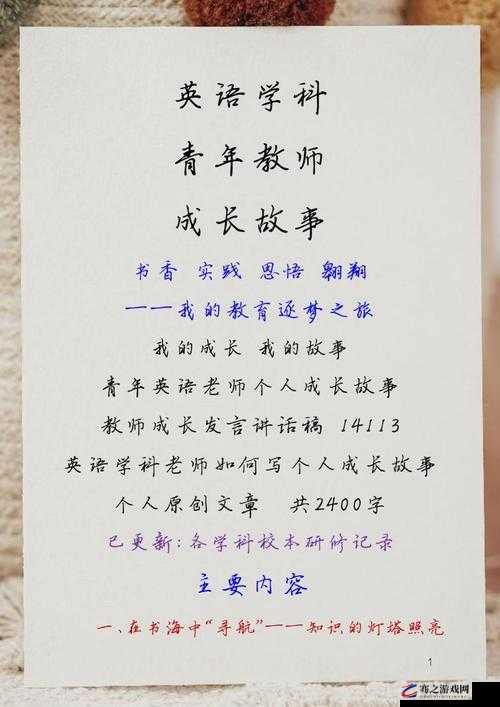 英语学科
青年教师
成长故事
书香 实践 思悟 翱翔
——我的教育逐梦之旅
我的成长 我的故事
青年英语老师个人成长故事
教师成长发言讲话稿 14113
英语学科老师如何写个人成长故事
个人原创文章 共2400字
已更新:各学科校本研修记录
主要内容
一、在书海中“导航”——知识的灯塔照亮
1
骞之游戏网